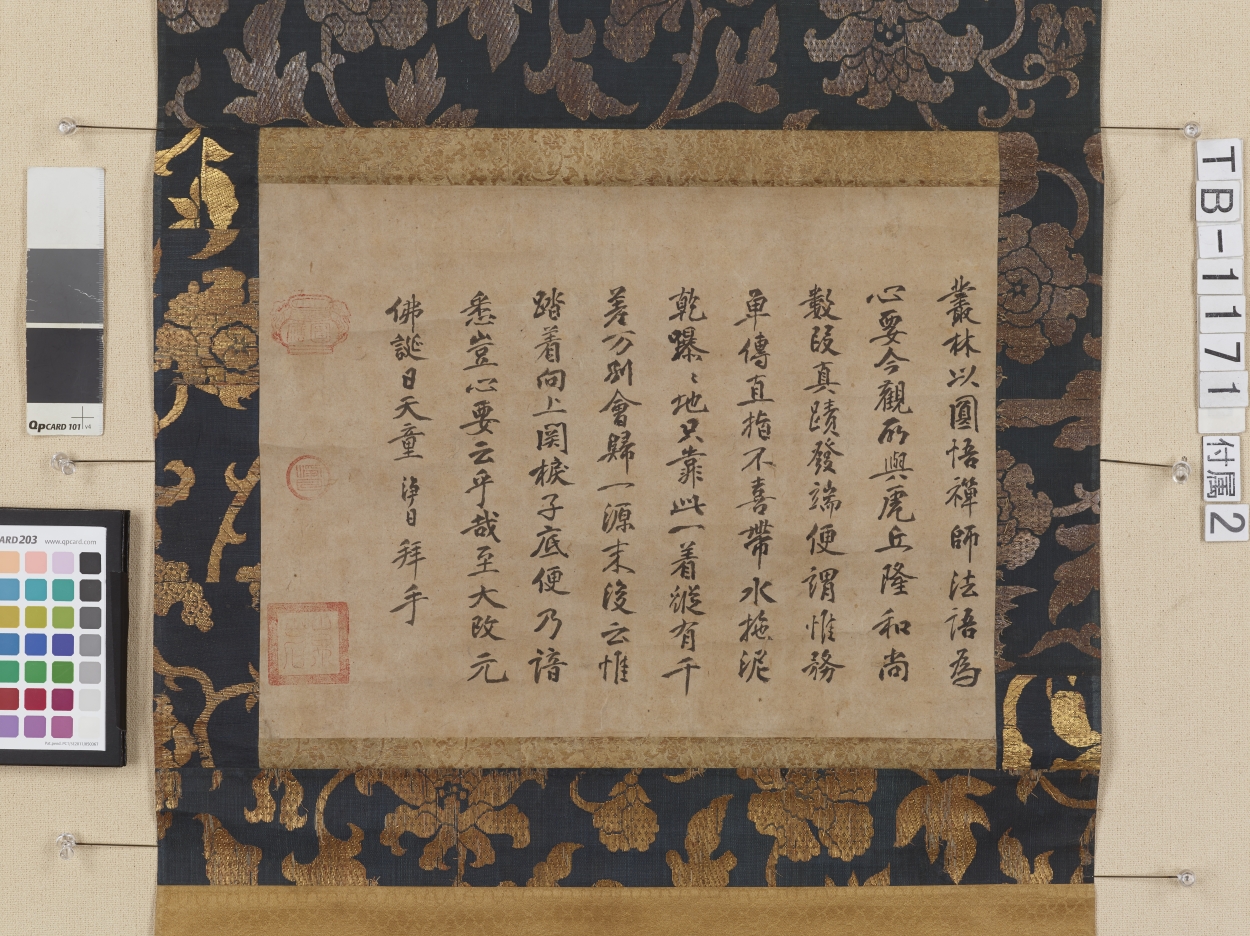 叢林以圓悟禪師法語為
心要今觀所與虎丘隆和尚
數段真蹟發端便謂惟務
單傳直指不喜帶水拖泥
乾曝〻地只靠此一着縱有千
差万別會歸一源末後云惟
踏着向上関棙子底便乃諳
悉豈心要云乎哉至大改元
佛誕日天童 淨日 拜手
TB-1171
付属2
QpCARD 101 v4
CARD 203 www.qpcard.com